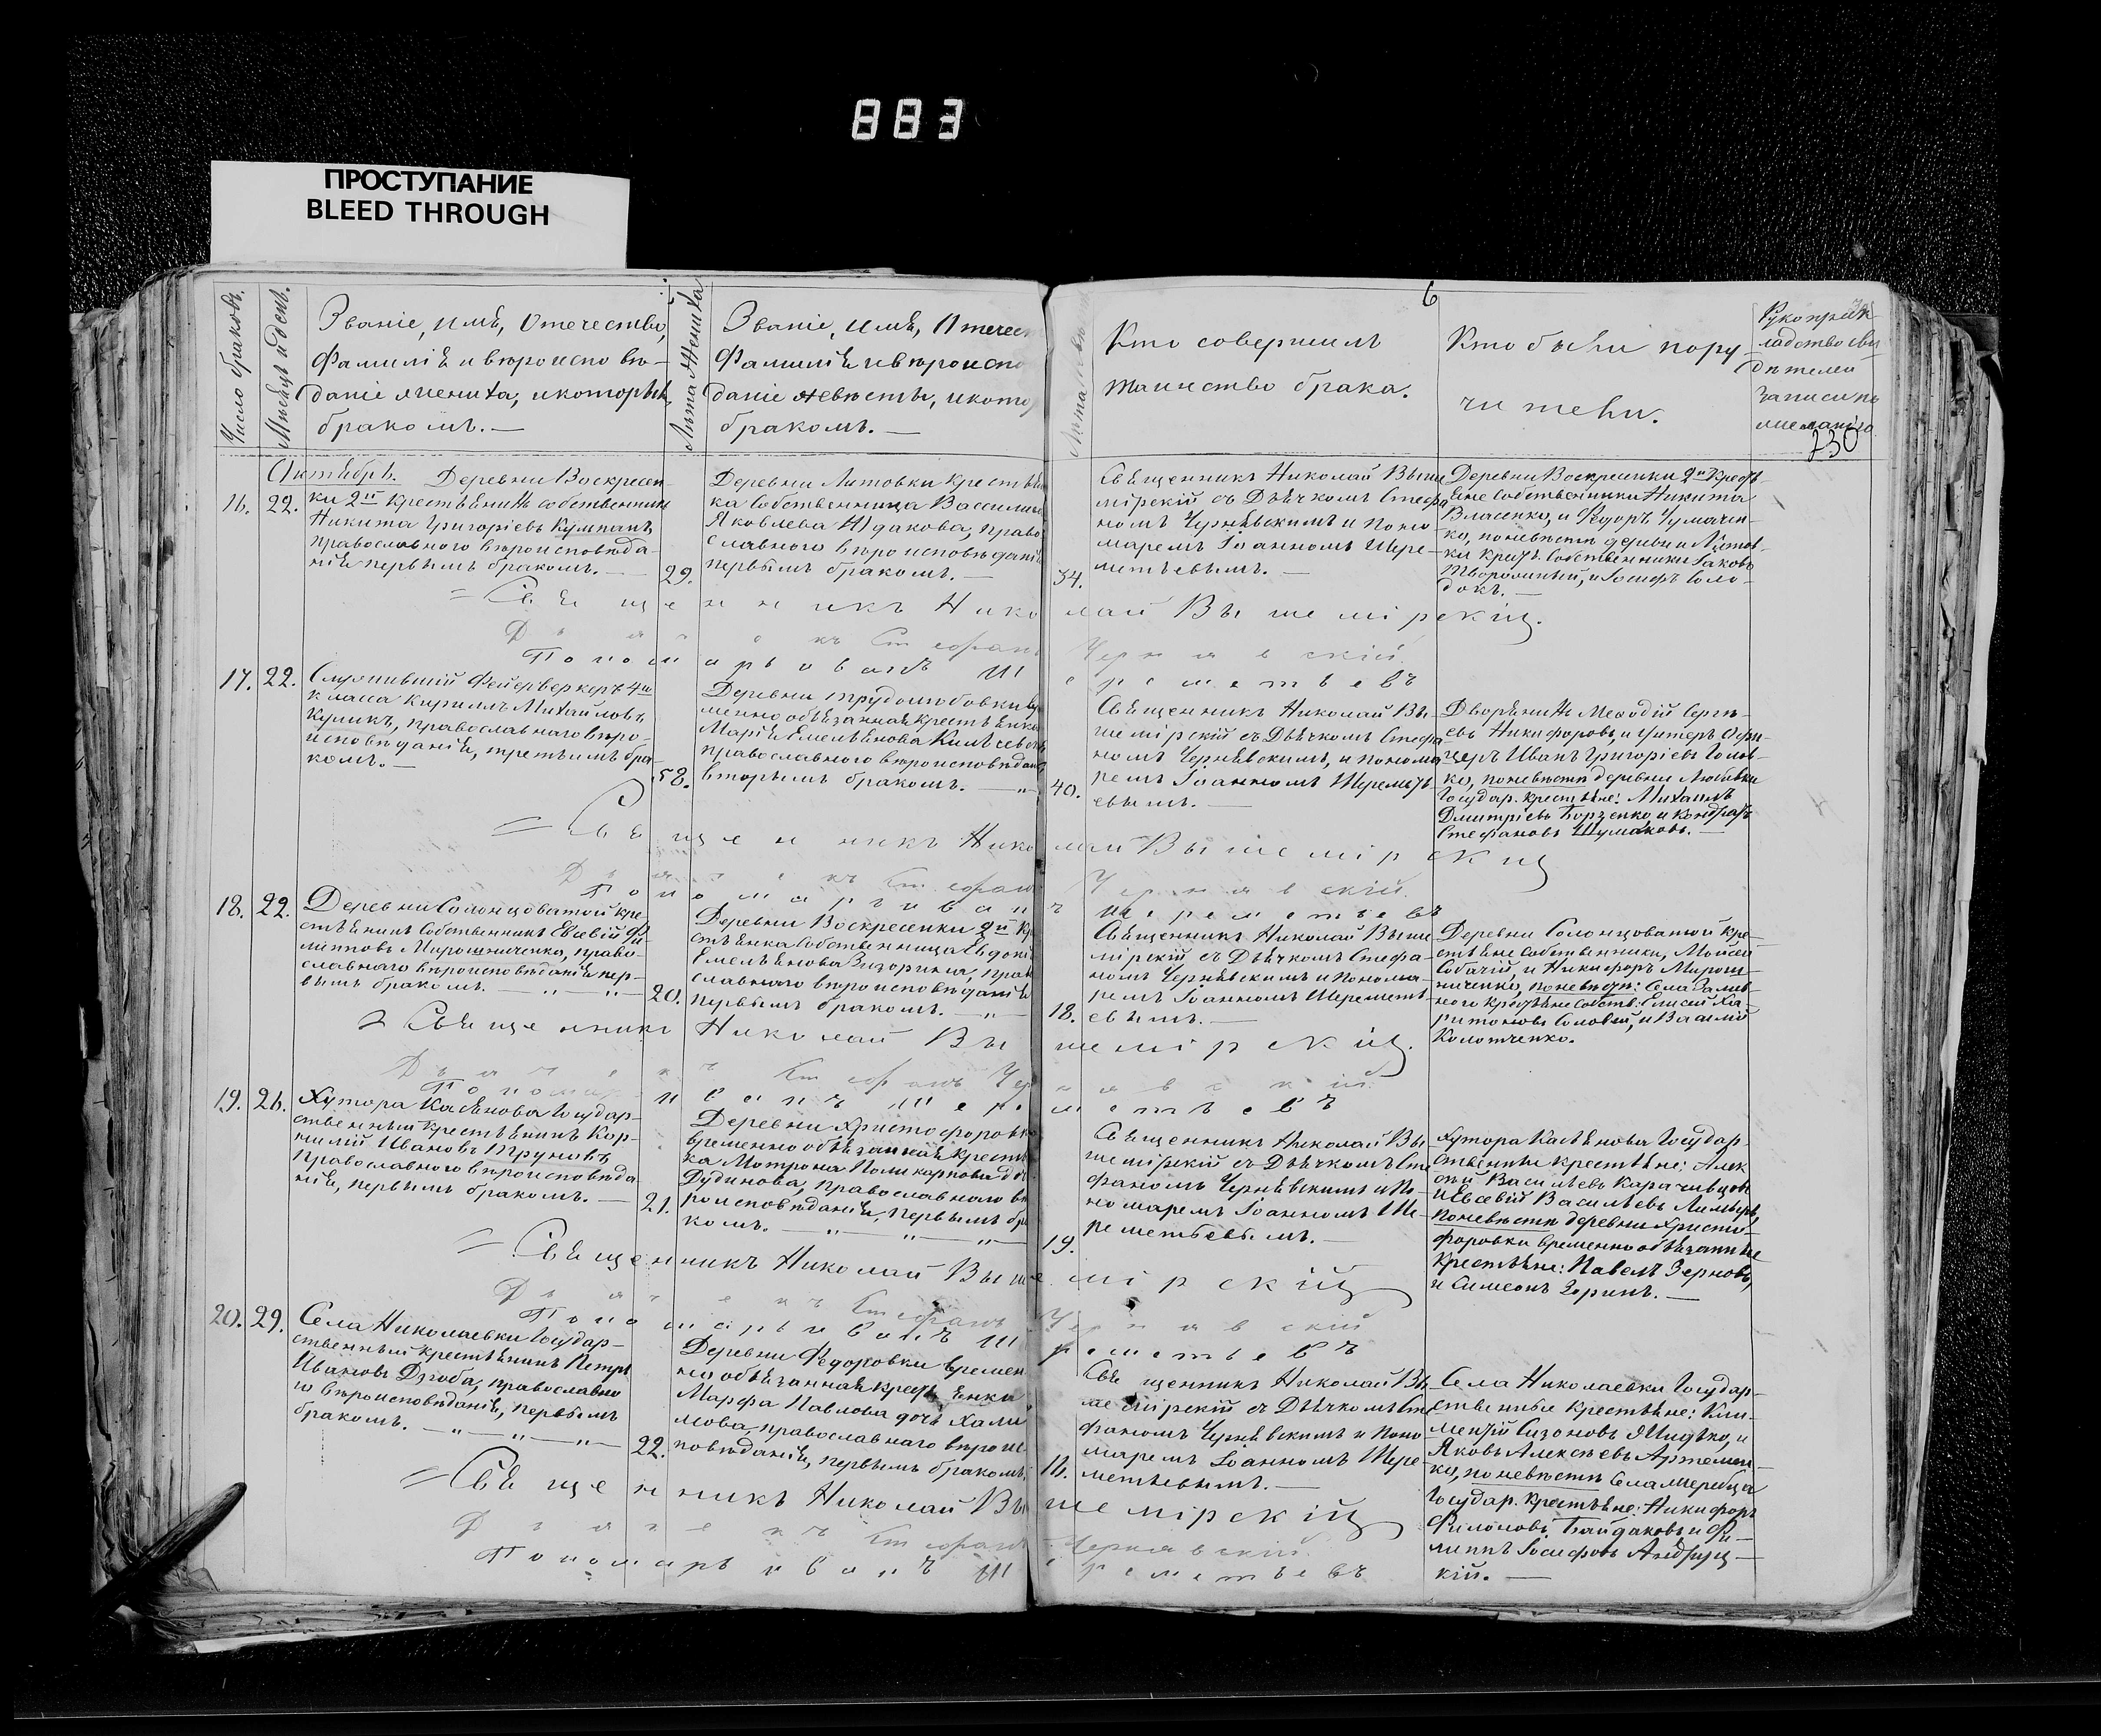 883
ПРОСТУПАНИЕ
BLEED THROUGH
6
Число браковъ.
Мѣсяцъ и день.
Званіе, имя, Отечество,
Фамилія и вѣроисповѣ-
даніе жениха, и которымъ
бракомъ. —
Лѣта Жениха
Званіе, имя, Отечес
Фамилія и вѣроиспо
даніе невѣсты, и кото
бракомъ. —
Кто совершилъ
таинство брака.
Кто были пору
чители.
Рукоприк-
ладство сви
дѣтелей
записи по
желанію
230
Октябрь.
16. 22.
Деревни Воскресен-
ки 2й крестьянинъ собственникъ
Никита Григорьевъ
православнаго вѣроисповѣда-
нія первымъ бракомъ. —
29.
Деревни Литовки крестьян
ка Собственница Вассилиса
Яковлева Жданова, право
славнаго вѣроисповѣданія
первымъ бракомъ. —
34.
Священникъ Николай Выше
мірскій съ Дьячкомъ Стефа
номъ Чернявскимъ и Поно-
маремъ Іоанномъ Шере-
метьевымъ. —
Деревни Воскресенки 2й Крест
яне собственники Никита
Власенко, и Федоръ Чумачен-
ко, по невѣстѣ деревни Литов-
ки крест. Собственники Іаковъ
и Іосифъ Соло-
докъ. —
= Священникъ Николай Вышемірскій.
Дьячекъ Стефанъ Чернявскій.
Пономарь Іванъ Шереметьевъ
17. 22.
Служившій Фейерверкеръ 4го
класса Кириллъ Михайловъ
Куликъ, православнаго вѣро-
исповѣданія, третьимъ бра-
комъ. —
58.
Деревни Трудолюбовки вре
менно обязанная крестьянка
Марія Емельянова
православнаго вѣроисповѣдан
вторымъ бракомъ. — „
40.
Священникъ Николай Вы-
шемірскій съ Дьячкомъ Стефа
номъ Чернявскимъ, и Понома
ремъ Іоанномъ Шеремет
евымъ. —
Дворянинъ Меѳодій Сергѣ-
евъ Никифоровъ, и Унтеръ Офи-
церъ Иванъ Григорьевъ Голов-
ко, по невѣстѣ деревни
Государ. крестьяне: Михаилъ
Дмитріевъ Борзенко и Кондратъ
Стефановъ Шумаковъ. —
= Священникъ Николай Вышемірскій
Дьячекъ Стефанъ Чернявскій.
Пономарь Иванъ Шереметьевъ
18. 22.
Деревни Солонцоватой кре
стьянинъ Собственникъ Евсевій Фи
липповъ Мирошниченко, право-
славнаго вѣроисповѣданія пер-
вымъ бракомъ. — „ — „ —
20.
Деревни Воскресенки 2й Кр
стьянка Собственница Евдокі
Емельянова Зизорина, прав
славнаго вѣроисповѣданія
первымъ бракомъ. — „ —
18.
Священникъ Николай Выше
мірскій съ Дьячкомъ Стефа-
номъ Чернявскимъ и Понома-
ремъ Іоанномъ Шеремет
евымъ. —
Деревни Солонцоватой кре-
стьяне собственники, Моисей
Собачій, и Никифоръ Мирош-
ниченко, по невѣстѣ: Села
крестьяне собств: Елисей Ха-
ритоновъ Соловей, и Василій
Колотченко.
= Священникъ Николай Вышемірскій.
Дьячекъ Стефанъ Чернявскій
Пономарь Іванъ Шереметьевъ
19. 26.
Хутора Касьянова Государ-
ственный крестьянинъ Кор-
нилій Ивановъ Труновъ
Православнаго вѣроисповѣда
нія, первымъ бракомъ. —
21.
Деревни Христофоровк
временно обязанная крестьян
ка Мотрона Поликарпова до
Дудинова, православнаго вѣ
роисповѣданія, первымъ бра
комъ. — „ — „ — „ —
19.
Священникъ Николай Вы-
шемірскій съ Дьячкомъ Сте
фаномъ Чернявскимъ и По-
номаремъ Іоанномъ Ше-
реметьевымъ. —
Хутора Касьянова Государ-
ственные крестьяне: Алек
сѣй Васильевъ Карачевцовъ
и Евсевій Васильевъ
по невѣстѣ деревни Христо-
форовки временно обязанные
крестьяне: Павелъ Зерновъ,
и Симеонъ Зоринъ. —
= Священникъ Николай Вышемірскій
Дьячекъ Стефанъ Чернявскій
Пономарь Иванъ Шереметьевъ
20. 29.
Села Николаевки Государ-
ственный крестьянинъ Петръ
Ивановъ Дзюба, православна
го вѣроисповѣданія, первымъ
бракомъ. — „ — „ — „ —
22.
Деревни Федоровки времен
но обязанная крестьянка
Марфа Павлова дочь Хали
мова, православнаго вѣроис
повѣданія, первымъ бракомъ.
18.
Священникъ Николай Вы
шемірскій съ Дьячкомъ Сте
фаномъ Чернявскимъ и Поно
маремъ Іоанномъ Шере-
метьевымъ. —
Села Николаевки Государ-
ственные крестьяне: Кли-
ментій Сизоновъ Жидко, и
Яковъ Алексѣевъ Артемен-
ко, по невѣстѣ Села Жеребца
Государ. крестьяне: Никифоръ
Филоновъ Байдаковъ и Фи-
липпъ Іосифовъ Андрущ-
кій. —
= Священникъ Николай Вышемірскій
Дьячекъ Стефанъ Чернявскій.
Пономарь Иванъ Шереметьевъ